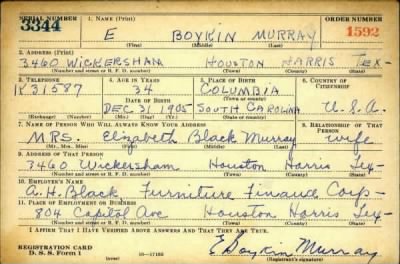 SERIAL NUMBER 1. NAME (Print) ORDER NUMBER
3344 E BOYKIN MURRAY 1592
(First) (Middle) (Last)
2. ADDRESS (Print)
3460 WICKERSHAM HOUSTON HARRIS TEX
(Number and street or R. F. D. number) (Town) (County) (State)
3. TELEPHONE 4. AGE IN YEARS 5. PLACE OF BIRTH 6. COUNTRY OF CITIZENSHIP
K31587 34 COLUMBIA
DATE OF BIRTH (Town or county)
DEC. 31, 1905 SOUTH CAROLINA U.S.A.
(Exchange) (Number) (Mo.) (Day) (Yr.) (State or country)
7. NAME OF PERSON WHO WILL ALWAYS KNOW YOUR ADDRESS 8. RELATIONSHIP OF THAT PERSON
MRS. Elizabeth Black Murray wife
(Mr., Mrs., Miss) (First) (Middle) (Last)
9. ADDRESS OF THAT PERSON
3460 Wickersham Houston Harris Tex-
(Number and street or R. F. D. number) (Town) (County) (State)
10. EMPLOYER'S NAME
A.H. Black Furniture Finance Corp-
11. PLACE OF EMPLOYMENT OR BUSINESS
804 Capitol Ave Houston Harris Tex-
(Number and street or R. F. D. number) (Town) (County) (State)
I AFFIRM THAT I HAVE VERIFIED ABOVE ANSWERS AND THAT THEY ARE TRUE.
REGISTRATION CARD
D. S. S. Form 1 E Boykin Murray
(over) (Registrant's signature)